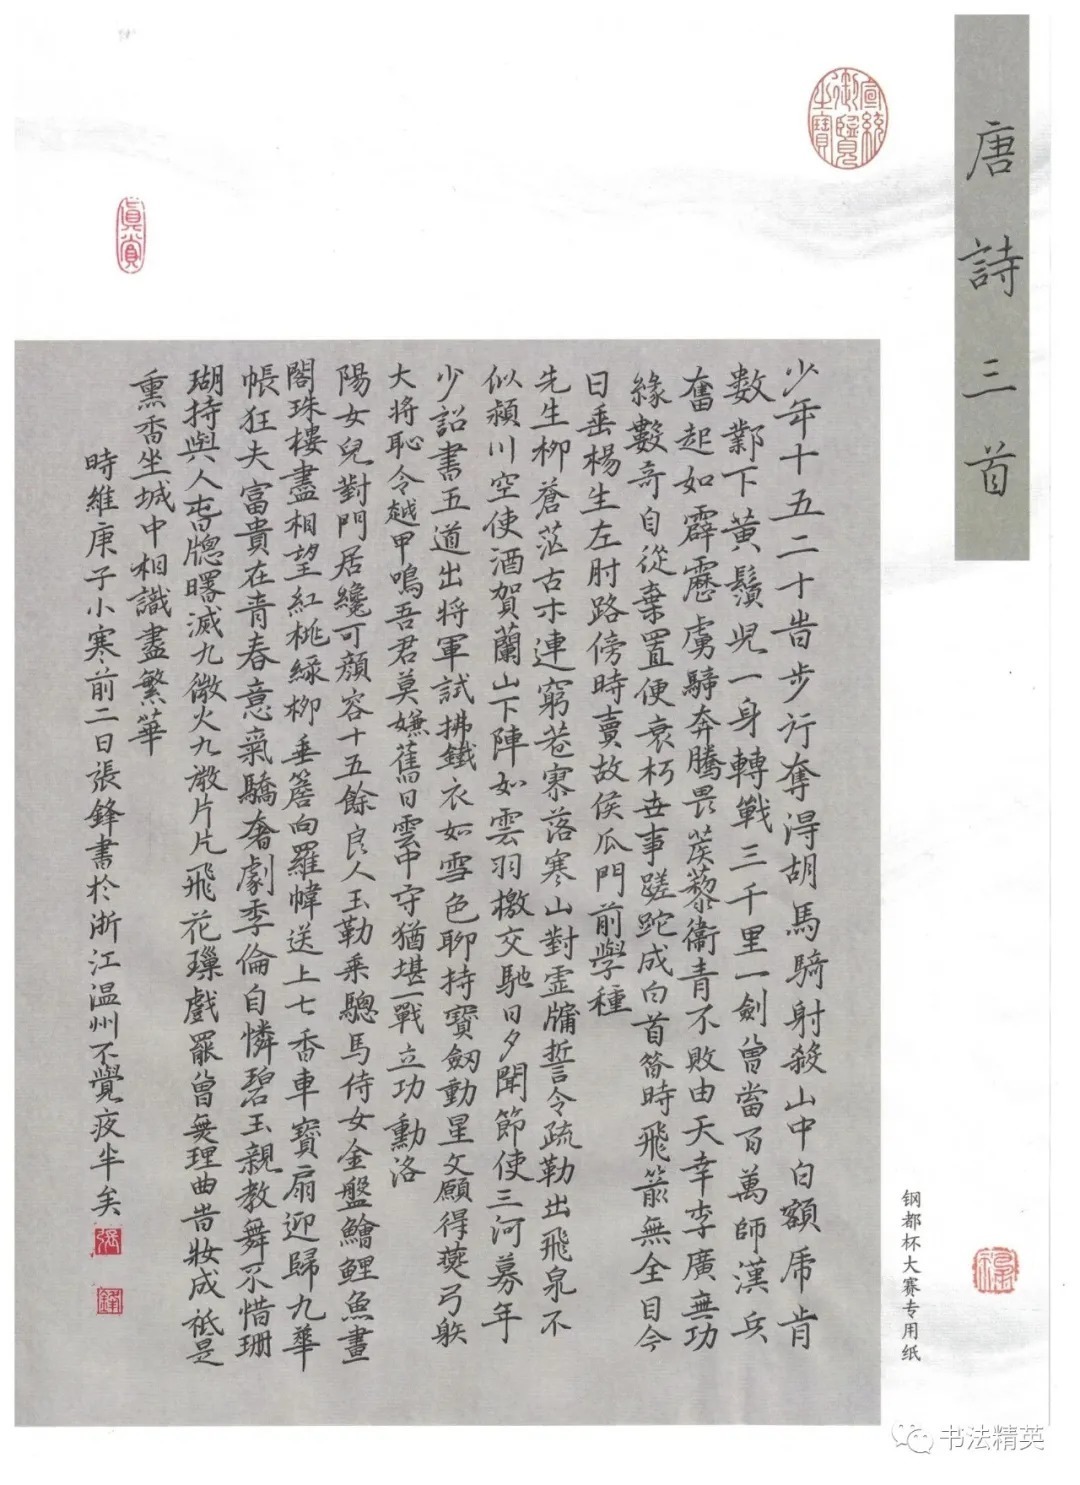 唐詩三首
宣統御覽之寶
真賞
少年十五二十旹步行奪淂胡馬騎射殺山中白額虎肯
数鄴下黄鬚兒一身轉戰三千里一劍曾當百萬師漢兵
奮起如霹靂虜騎奔騰畏蒺藜衞青不敗由天幸李廣無功
緣數奇自從棄置便衰朽世事蹉跎成白首昝時飛箭無全目今
日垂楊生左肘路傍時賣故侯瓜門前學種
先生柳蒼茫古木連窮巷寥落寒山對霊牖誓令疏勒出飛泉不
似潁川空使酒賀蘭山下陣如雲羽檄交馳日夕聞節使三河募年
少詔書五道出將軍試拂鐵衣如雪色聊持寶劒動星文願得燕弓射
大将恥令越甲鳴吾君莫嫌舊日雲中守猶堪一戰立功勳洛
陽女兒對門居纔可顔容十五餘良人玉勒乘驄馬侍女金盤鱠鯉魚畫
閣珠樓盡相望紅桃緑柳垂簷向羅幃送上七香車寳扇迎歸九華
帳狂夫富貴在青春意氣驕奢劇季倫自憐碧玉親教舞不惜珊
瑚持與人春牕曙滅九微火九微片片飛花璅戲罷曾無理曲旹妝成祗是
熏香坐城中相識盡繁華
時維庚子小寒前二日張鋒書於浙江温州不覺夜半矣
張
鋒
钢都杯大赛专用纸
书法精英